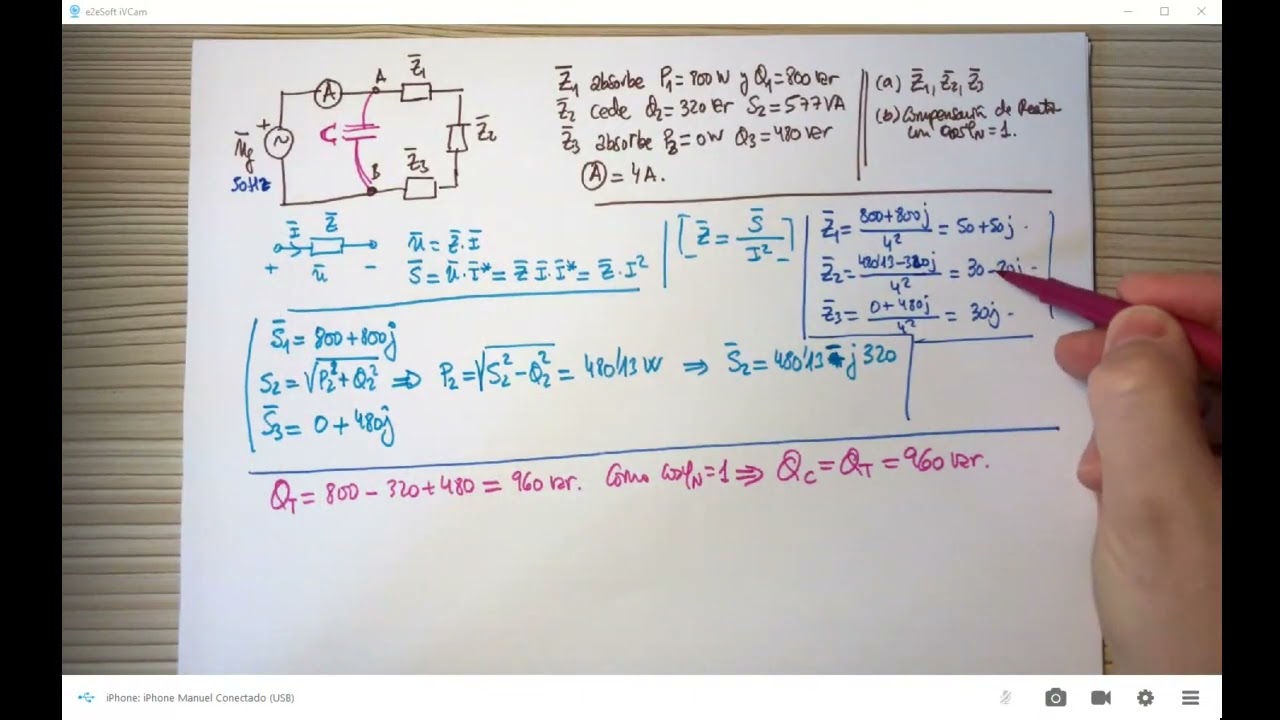 e2eSoft iVCam
A
A
Z̄1
C
Z̄2
Z̄3
B
+
ūg
50Hz
Z̄1 absorbe P1=800W y Q1=800var
Z̄2 cede Q2=320var S2=577VA
Z̄3 absorbe P3=0W Q3=480var
Ⓐ=4A.
(a) Z̄1, Z̄2, Z̄3
(b) Compensación de Reactiva
con cosφN=1.
Ī Z̄
+ ū −
ū=Z̄·Ī
S̄=ū·Ī*=Z̄ Ī·Ī*=Z̄·I²
[Z̄=S̄/I²]
Z̄1=(800+800j)/4²=50+50j.
Z̄2=(480'13-320j)/4²=30-20j.
Z̄3=(0+480j)/4²=30j.
S̄1=800+800j
S2=√(P2²+Q2²) ⇒ P2=√(S2²-Q2²)=480'13W ⇒ S̄2=480'13-j320
S̄3=0+480j
QT=800-320+480=960var. Como cosφN=1 ⇒ QC=QT=960var.
iPhone: iPhone Manuel Conectado (USB)